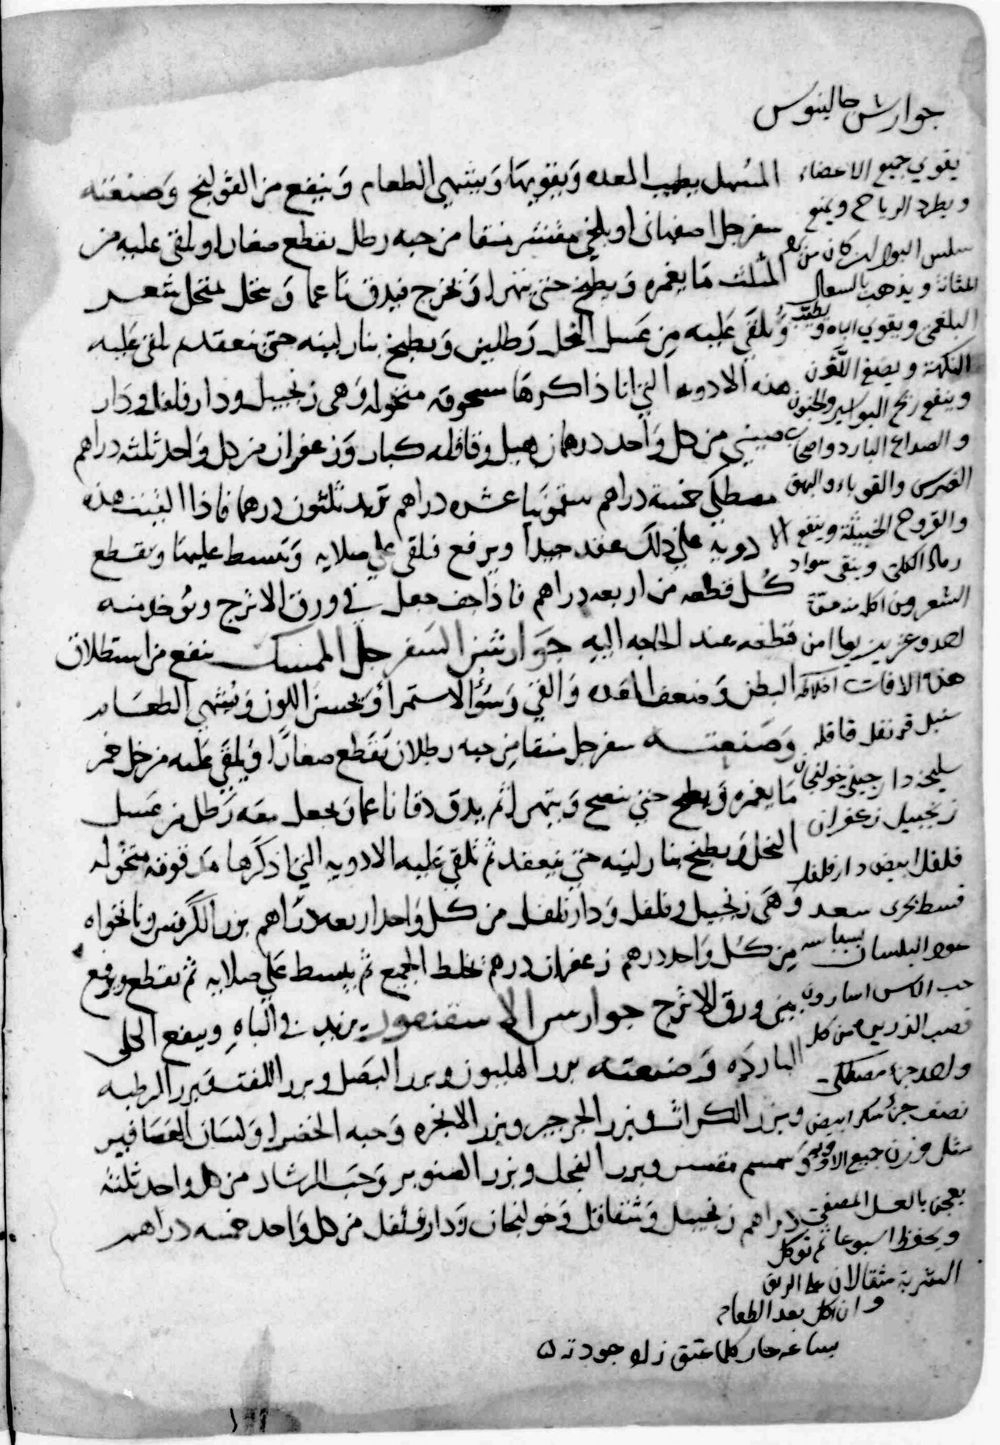 جوارش جالينوس
يقوي جميع الاعضاء
ويطرد الرياح ويمنع
سلس البول ان كان من برد
المثانة ويذهب بالسعال
البلغمي ويقوي الباه ويطيب
النكهة ويصفي اللون
وينفع ريح البواسير والجنون
والصداع البارد واصحاب
النقرس والقوباء والبهق
والقروح الخبيثة وينفع
رمال الكلى ويبقي سواد
الشعر ومن اكل منه
امن
هذه الافات اخلاطه
سنبل قرنفل قاقله
سليخه دارجيني خولنجان
زنجبيل زعفران
فلفل ابيض دارفلفل
قسط بحري سعد
عود البلسان بسباسه
حب الاس اسارون
قصب الذريره من كل
واحد جزء مصطكى
نصف جزء سكر ابيض
مثل وزن جميع الادويه
يعجن بالعسل المصفى
ويحفظ اسبوعا ثم توكل
الشربة مثقالان على الريق
وان اكل بعد الطعام
بساعه جاز كلما عتق زاد جودته
المسهل يطيب المعده ويقويها ويشهي الطعام وينفع من القولنج وصنعته
سفرجل اصفهانى او بلخي مقشر منقا من حبه رطل يقطع صغارا ويلقى عليه من
المثلث ما يغمره ويطبخ حتى يتهرا ويخرج فيدق ناعما وينخل بمنخل شعر
ويلقى عليه من عسل النحل رطلين ويطبخ بنار لينه حتى ينعقد ثم يلقى عليه
هذه الادويه التي انا ذاكرها مسحوقه منخوله وهي زنجبيل ودار فلفل ودار
صيني من كل واحد درهمان هيل وقاقله كبار وزعفران من كل واحد ثلثه دراهم
مصطكي خمسة دراهم سقمونيا عشره دراهم تربد ثلثون درهما فاذا القيت هذه
الادويه على ذلك عقد جيدا ويرفع فيلقى على صلايه ويبسط عليها ويقطع
كل قطعه من اربعه دراهم فاذا جف جعل في ورق الاترج ويؤخذ منه
قطعه عند الحاجه اليه جوارشن السفرجل الممسك ينفع من استطلاق
البطن وضعف المعده والقي وسوء الاستمرا ويحسن اللون ويشهي الطعام
وصنعته سفرجل منقا من حبه رطلان يقطع صغارا ويلقى عليه من خل خمر
ما يغمره ويطبخ حتى ينضج ويتهرا ثم يدق دقا ناعما ويجعل معه رطل من عسل
النحل ويطبخ بنار لينه حتى ينعقد ثم تلقى عليه الادويه التي اذكرها مدقوقه منخوله
وهي زنجبيل وفلفل ودار فلفل من كل واحد اربعه دراهم بزر الكرفس ونانخواه
من كل واحد درهم زعفران درهم يخلط الجميع ثم يبسط على صلايه ثم يقطع ويرفع
بين ورق الاترج جوارسن الاسقنقور يزيد في الباه وينفع الكلى
البارده وصنعته بزر الهليون وبزر البصل وبزر اللفت وبزر الرطبه
وبزر الكراث وبزر الجرجير وبزر الانجره وحبه الخضرا ولسان العصافير
وسمسم مقشر وبزر الفجل وبزر الصنوبر وحب الرشاد من كل واحد ثلثه
دراهم زنجبيل وشقاقل وخولنجان ودار فلفل من كل واحد خمسه دراهم